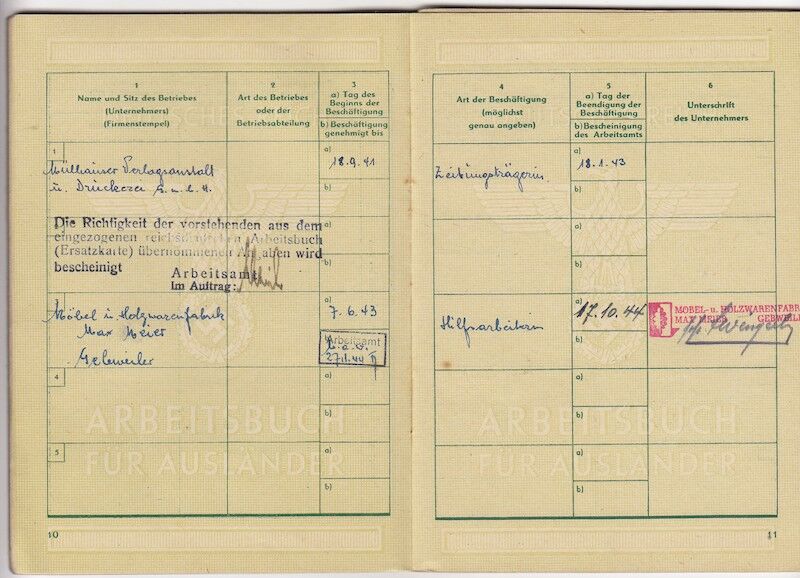 1
Name und Sitz des Betriebes
(Unternehmers)
(Firmenstempel)
2
Art des Betriebes
oder der
Betriebsabteilung
3
a) Tag des
Beginns der
Beschäftigung
b) Beschäftigung
genehmigt bis
1
Mülhauser Verlagsanstalt
u. Druckerei G.m.b.H.
a)
18.9.41
b)
a)
Die Richtigkeit der vorstehenden aus dem
eingezogenen reichsdeutschen Arbeitsbuch
(Ersatzkarte) übernommenen Angaben wird
bescheinigt
Arbeitsamt
Im Auftrag:
Möbel u. Holzwarenfabrik
Max Meier
Gebweiler
a)
7.6.43
Arbeitsamt
27.1.44
4
a)
b)
5
a)
b)
ARBEITSBUCH
FÜR AUSLÄNDER
10
4
Art der Beschäftigung
(möglichst
genau angeben)
5
a) Tag der
Beendigung der
Beschäftigung
b) Bescheinigung
des Arbeitsamts
6
Unterschrift
des Unternehmers
Zeitungsträgerin.
a)
18.1.43
b)
a)
b)
Hilfsarbeiterin
a)
17.10.44
b)
MÖBEL- u. HOLZWARENFABR
MAX MEIER GEBWEILE
a)
b)
a)
b)
ARBEITSBUCH
FÜR AUSLÄNDER
11